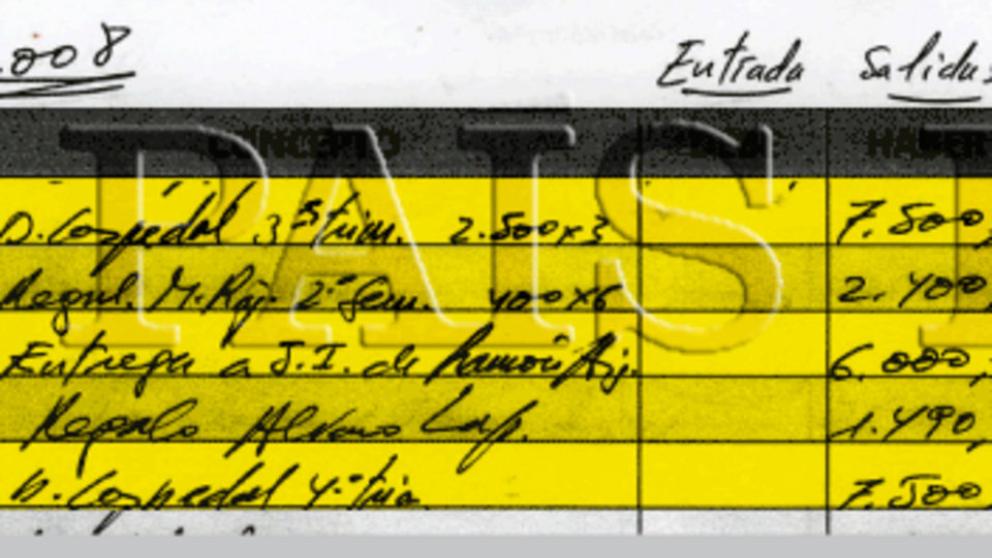 .008 Entrada Salidas
CONCEPTO HABER
PAIS
D. Cospedal 3º trim. 2.500x3 7.500,
Regul. M. Raj. 2º Sem. 400x6 2.400,
Entrega a J.I. de Ramón Aij. 6.000,
Regalo Alvaro Lap. 1.490,
D. Cospedal 4º trim 7.500